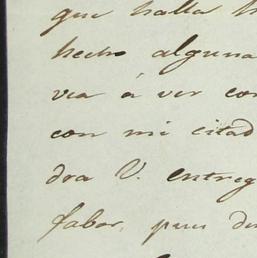 que halla h
hecho alguna
vea á ver con
con mi citad
dra V. entreg
fabor, pues de